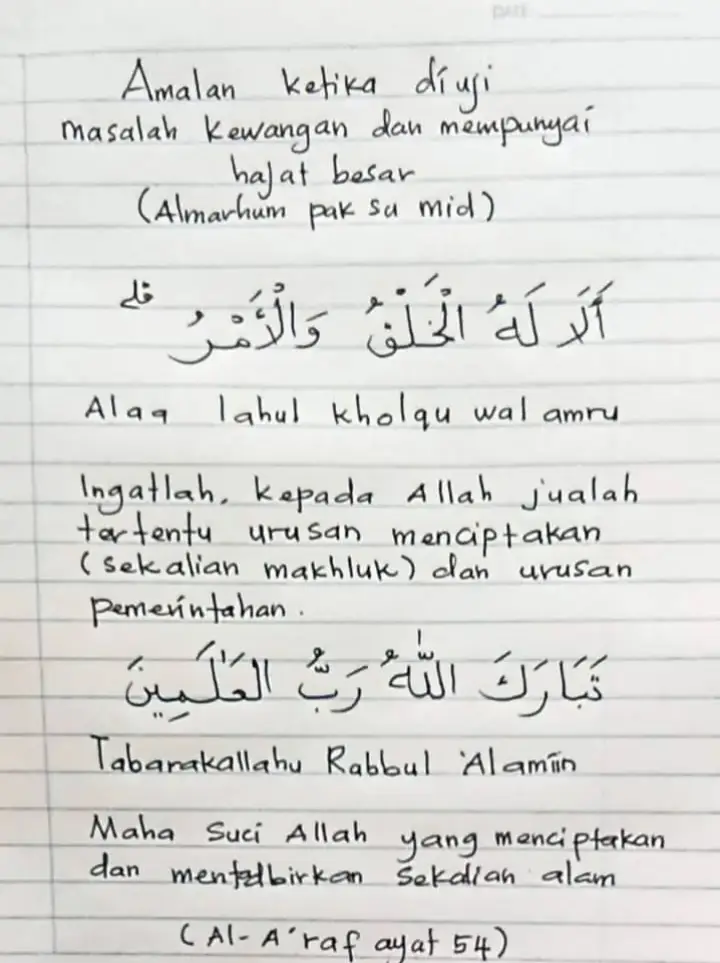 DATE
Amalan ketika diuji
masalah kewangan dan mempunyai
hajat besar
(Almarhum pak su mid)
أَلَا لَهُ الْخَلْقُ وَالْأَمْرُ ۗ
Alaa lahul kholqu wal amru
Ingatlah, kepada Allah jualah
tertentu urusan menciptakan
(sekalian makhluk) dan urusan
pemerintahan.
تَبَارَكَ اللَّهُ رَبُّ الْعَٰلَمِينَ
Tabarakallahu Rabbul 'Alamiin
Maha Suci Allah yang menciptakan
dan mentadbirkan sekalian alam
(Al-A'raf ayat 54)